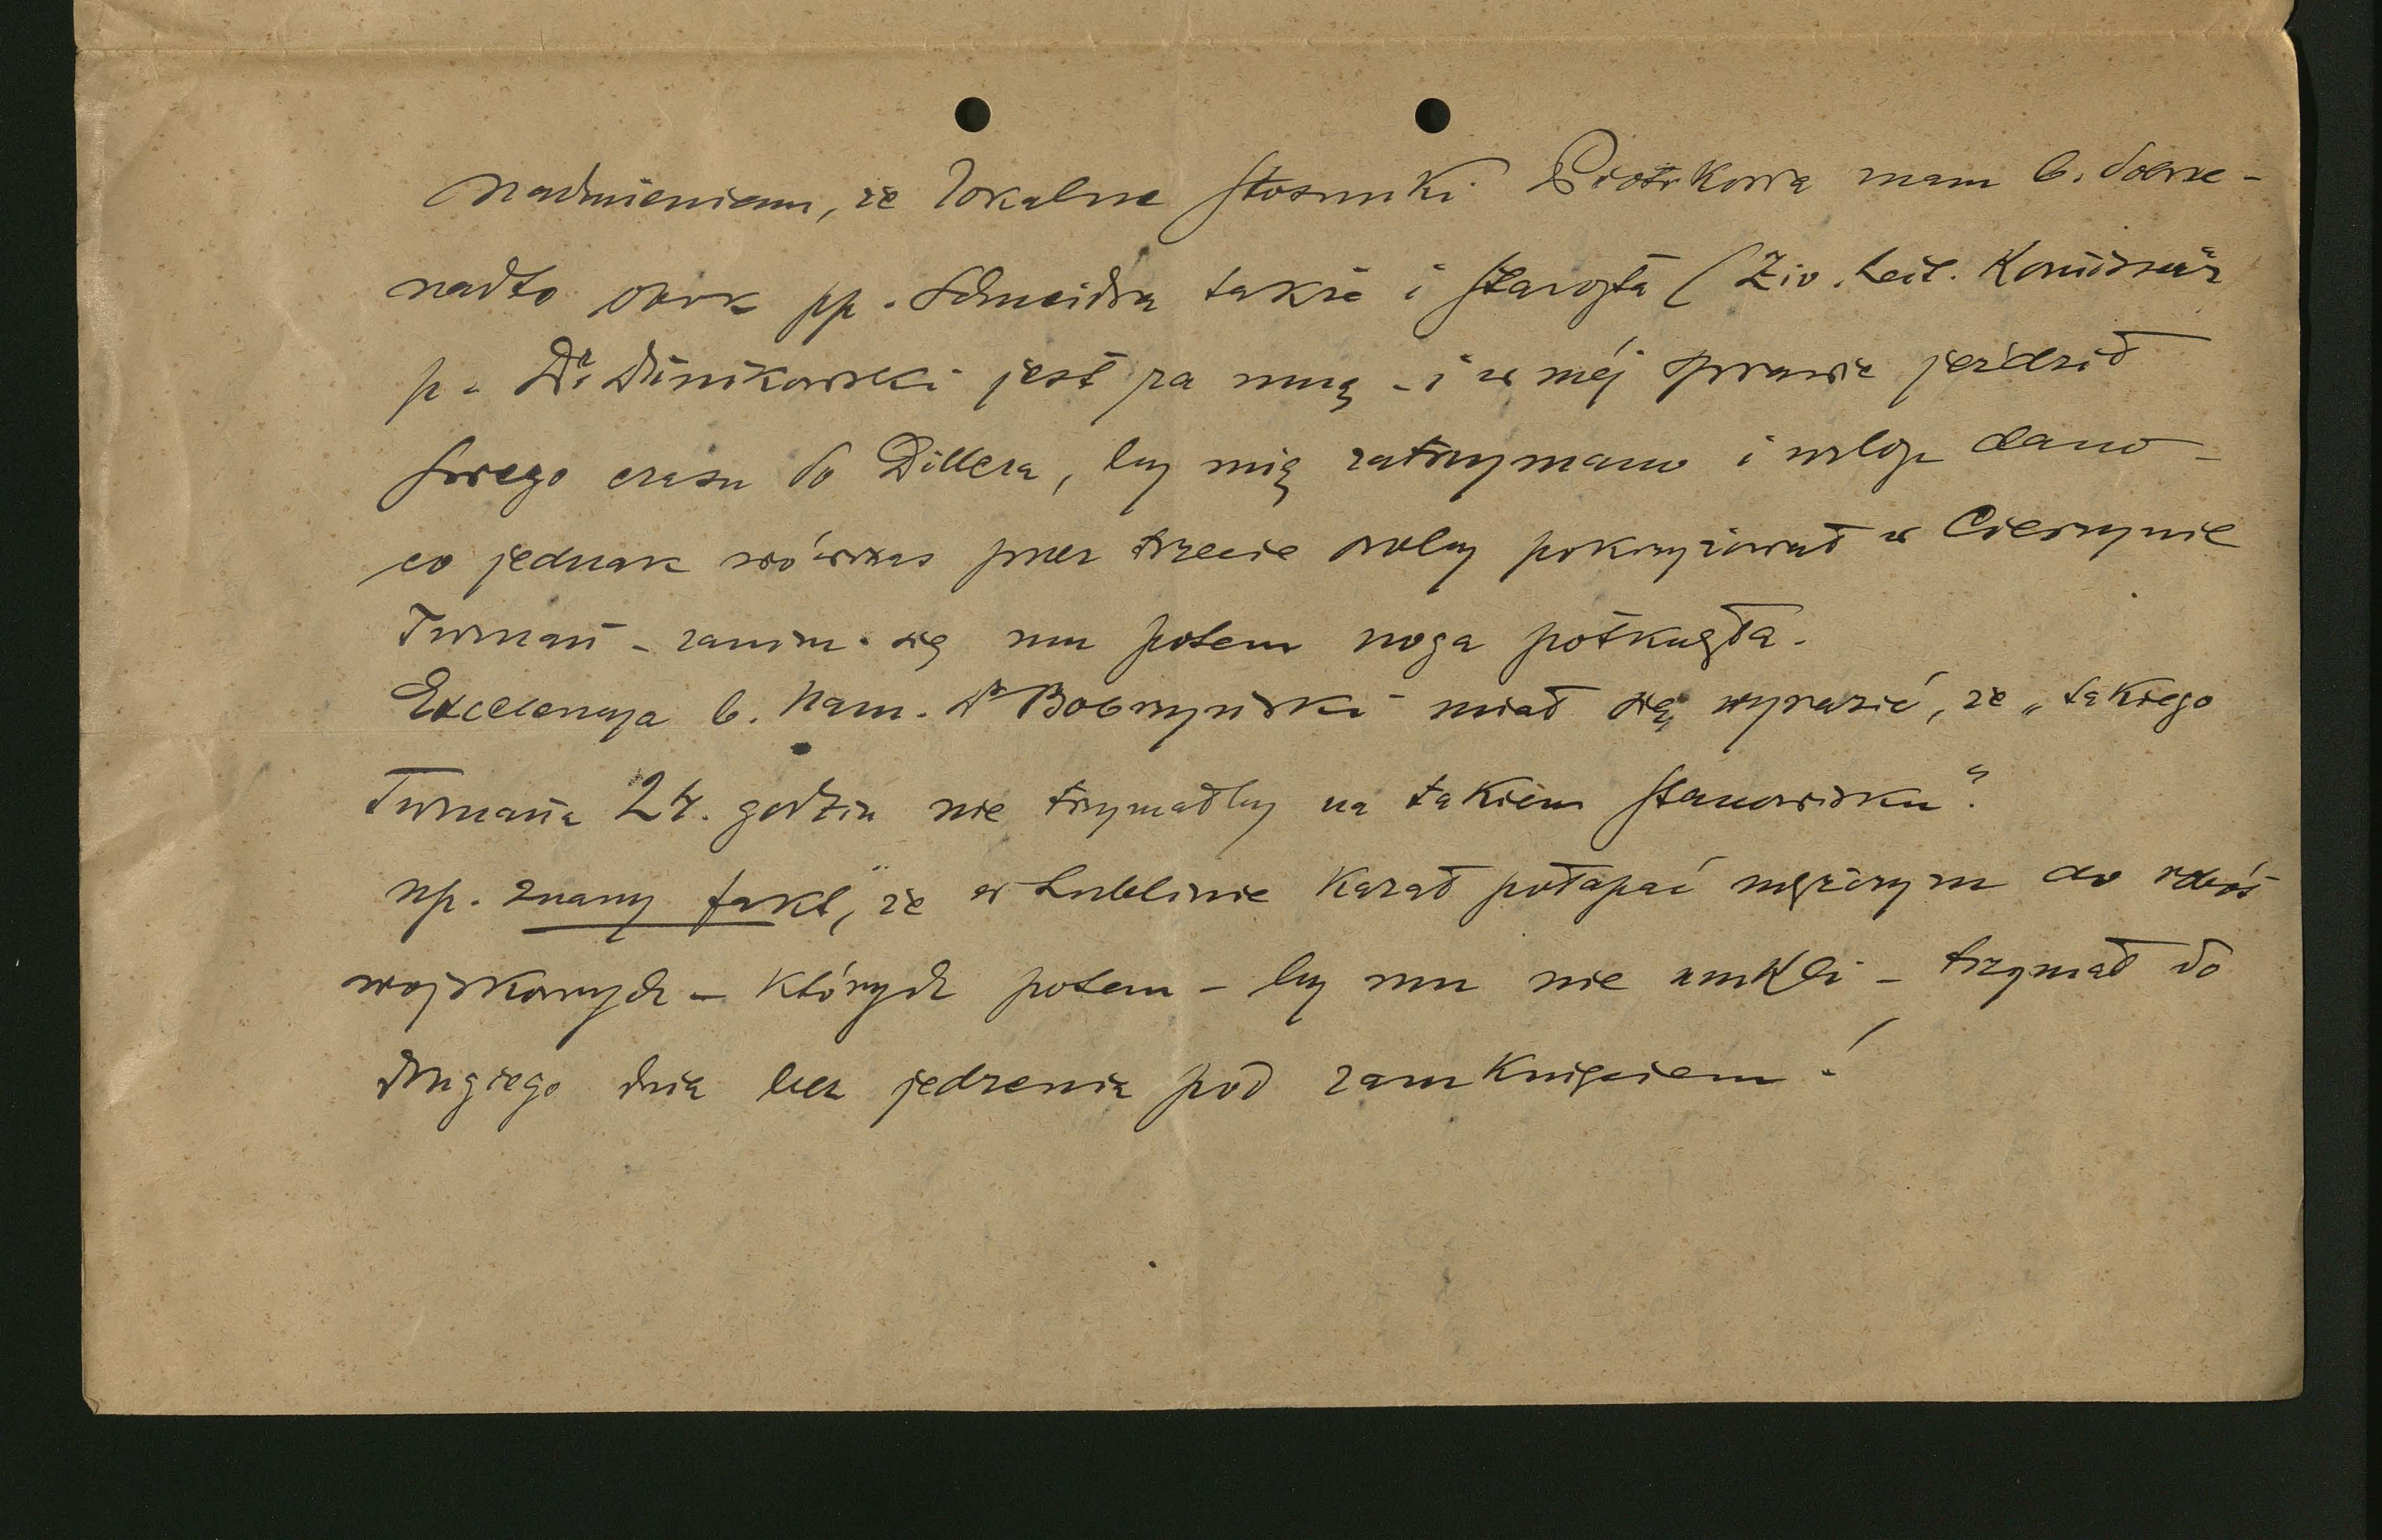 Nadmieniam, że lokalne stosunki Piotrkowa mam b. dobre -
nadto obok pp. Schneidra także i starosta (Ziv. Komissär
p. Dr. Dunikowski jest za mną - i w mej sprawie jeździł
swego czasu do Dillera, by mię zatrzymano i urlop dano -
co jednak wówczas przez trzecie osoby pokrzyżował w Cieszynie
Turnau - zanim się mu potem noga potknęła.
Excelencya b. Nam. Dr Bobrzyński miał się wyrazić, że „takiego
Turnaua 24. godzin nie trzymałby na takiem stanowisku".
np. znany fakt, że w Lublinie kazał połapać mężczyzn do robót
wojskowych - których potem - by mu nie umkli - trzymał do
drugiego dnia bez jedzenia pod zamknięciem!